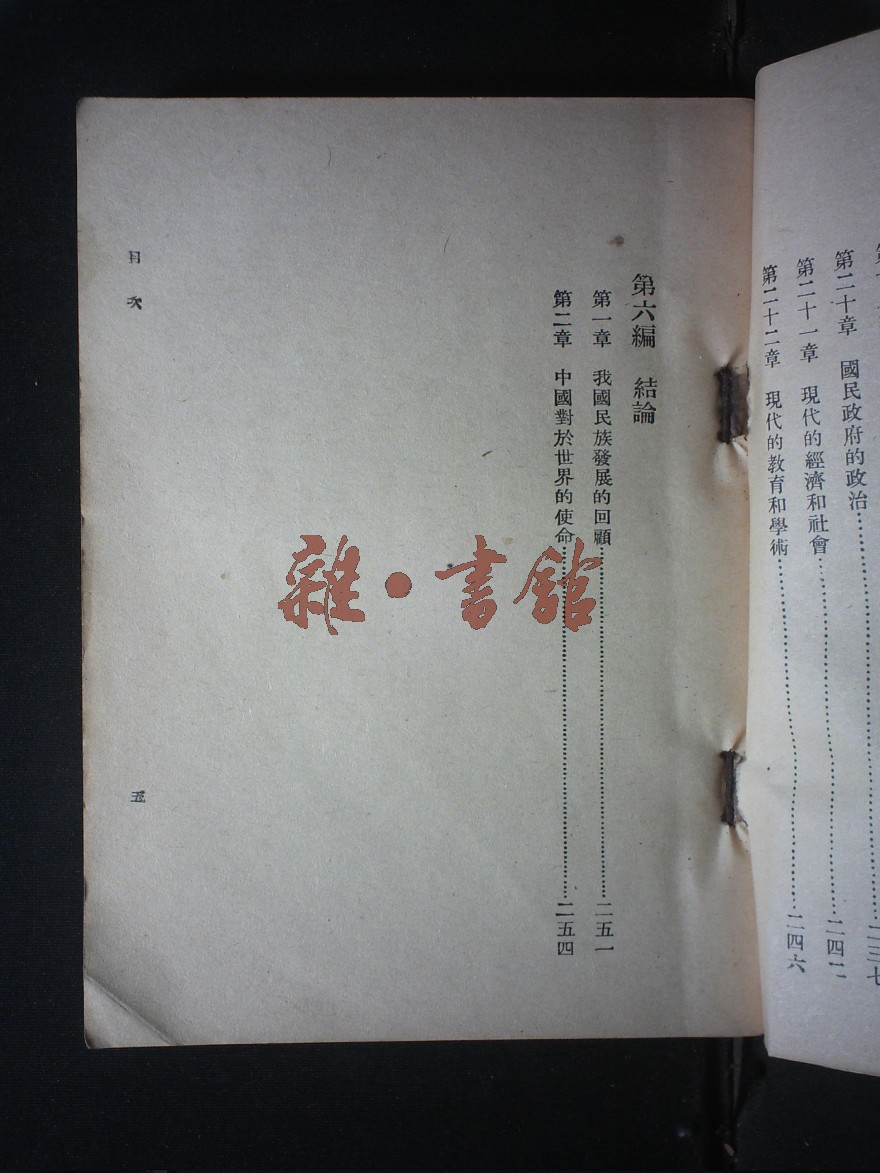 第二十章　國民政府的政治……二三七
第二十一章　現代的經濟和社會……二四二
第二十二章　現代的教育和學術……二四六
第六編　結論
第一章　我國民族發展的回顧……二五一
第二章　中國對於世界的使命……二五四
目次
五
雜・書館